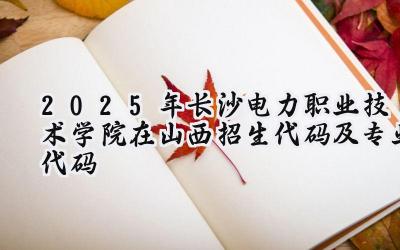 2025年长沙电力职业技
术学院在山西招生代码及专业
代码